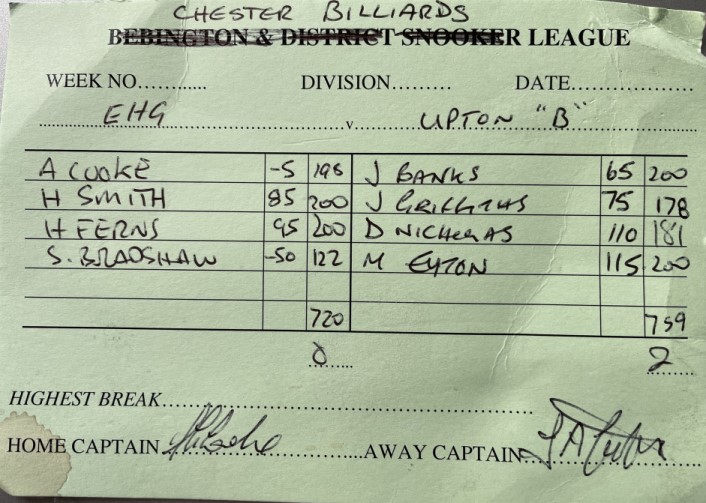 CHESTER BILLIARDS
BEBINGTON & DISTRICT SNOOKER LEAGUE
WEEK NO............ DIVISION......... DATE..................
EHG v UPTON "B"
A COOKE -5 198 J BANKS 65 200
H SMITH 85 200 J GRIFFITHS 75 178
H FERNS 95 200 D NICHOLAS 110 181
S. BRADSHAW -50 122 M EYTON 115 200
720 759
0 2
HIGHEST BREAK
HOME CAPTAIN AWAY CAPTAIN